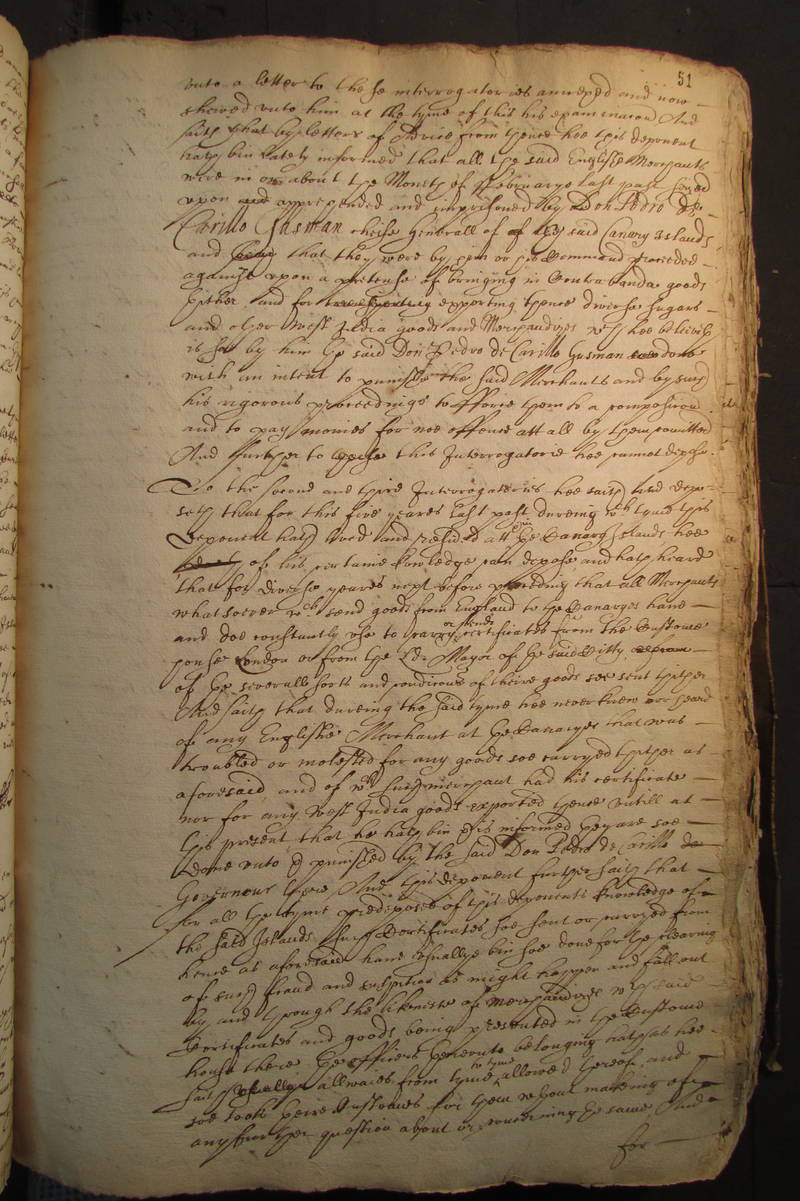 51
unto a letter to these interrogatories annexed and now
shewed unto him at the tyme of this his examinacon And
saith that by letters of Advice from thence hee this deponent
hath bin lately informed that all the said English Merchants
were in or about the Moneth of Februarye last past seized
upon and apprehended and imprisoned by Don Pedro de
Carillo Gusman cheife Generall of the said Canary Islands
and that they were by him or his Command proceeded
against upon a pretense of bringing in Contrabanda goods
thither and for exporting thence diverse sugars
and other West India goods and Merchandizes wch hee beleiveth
is soe by him the said Don Pedro de Carillo Gusman done
with an intent to punish the said Merchants and by such
his rigorous proceedings to fforce them to a composicon
and to pay monies for noe offense att all by them comitted
And further to this Interrogatorie hee cannot depose.
To the second and third Interrogatories hee saith and depo-
seth that for this five yeares last past dureing wch tyme this
Deponent hath lived and resided att the Canary Islands hee
of his certaine knowledge can depose and hath heard
that for diverse yeares next before preceding that all Merchants
whatsoever wch send goods from England to the Canaryes have
and doe constantly use to carry or send certificates from the Custome
house London or from the Ld: Mayor of the said Citty
of the severall sorts and condicons of theire goods soe sent thither
And saith that dureing the said tyme hee never knew or heard
of any English Merchant at the Canaryes that was
troubled or molested for any goods soe carryed thither as
aforesaid and of wch such merchant had his certificate
nor for any West India goods exported thence untill at
this present that he hath bin informed they are soe
done unto & punished by the said Don Pedro de Carillo de
Governour there And this deponent further saith that
for all the tyme predeposed of this deponents knowledge of
the said Islands such Certificates soe sent or carryed from
hence as aforesaid have usually bin soe done for the clearing
of such fraud and suspition as might happen and fall out
by and through the likenesse of merchandizes wch said
Certificates and goods being presented in the Custome
house there the officers thereunto belonging hath as hee
saith allwaies from tyme to tyme allowed thereof and
soe took theire Customes for them without makeing of
any further question about or concerning the same And
for